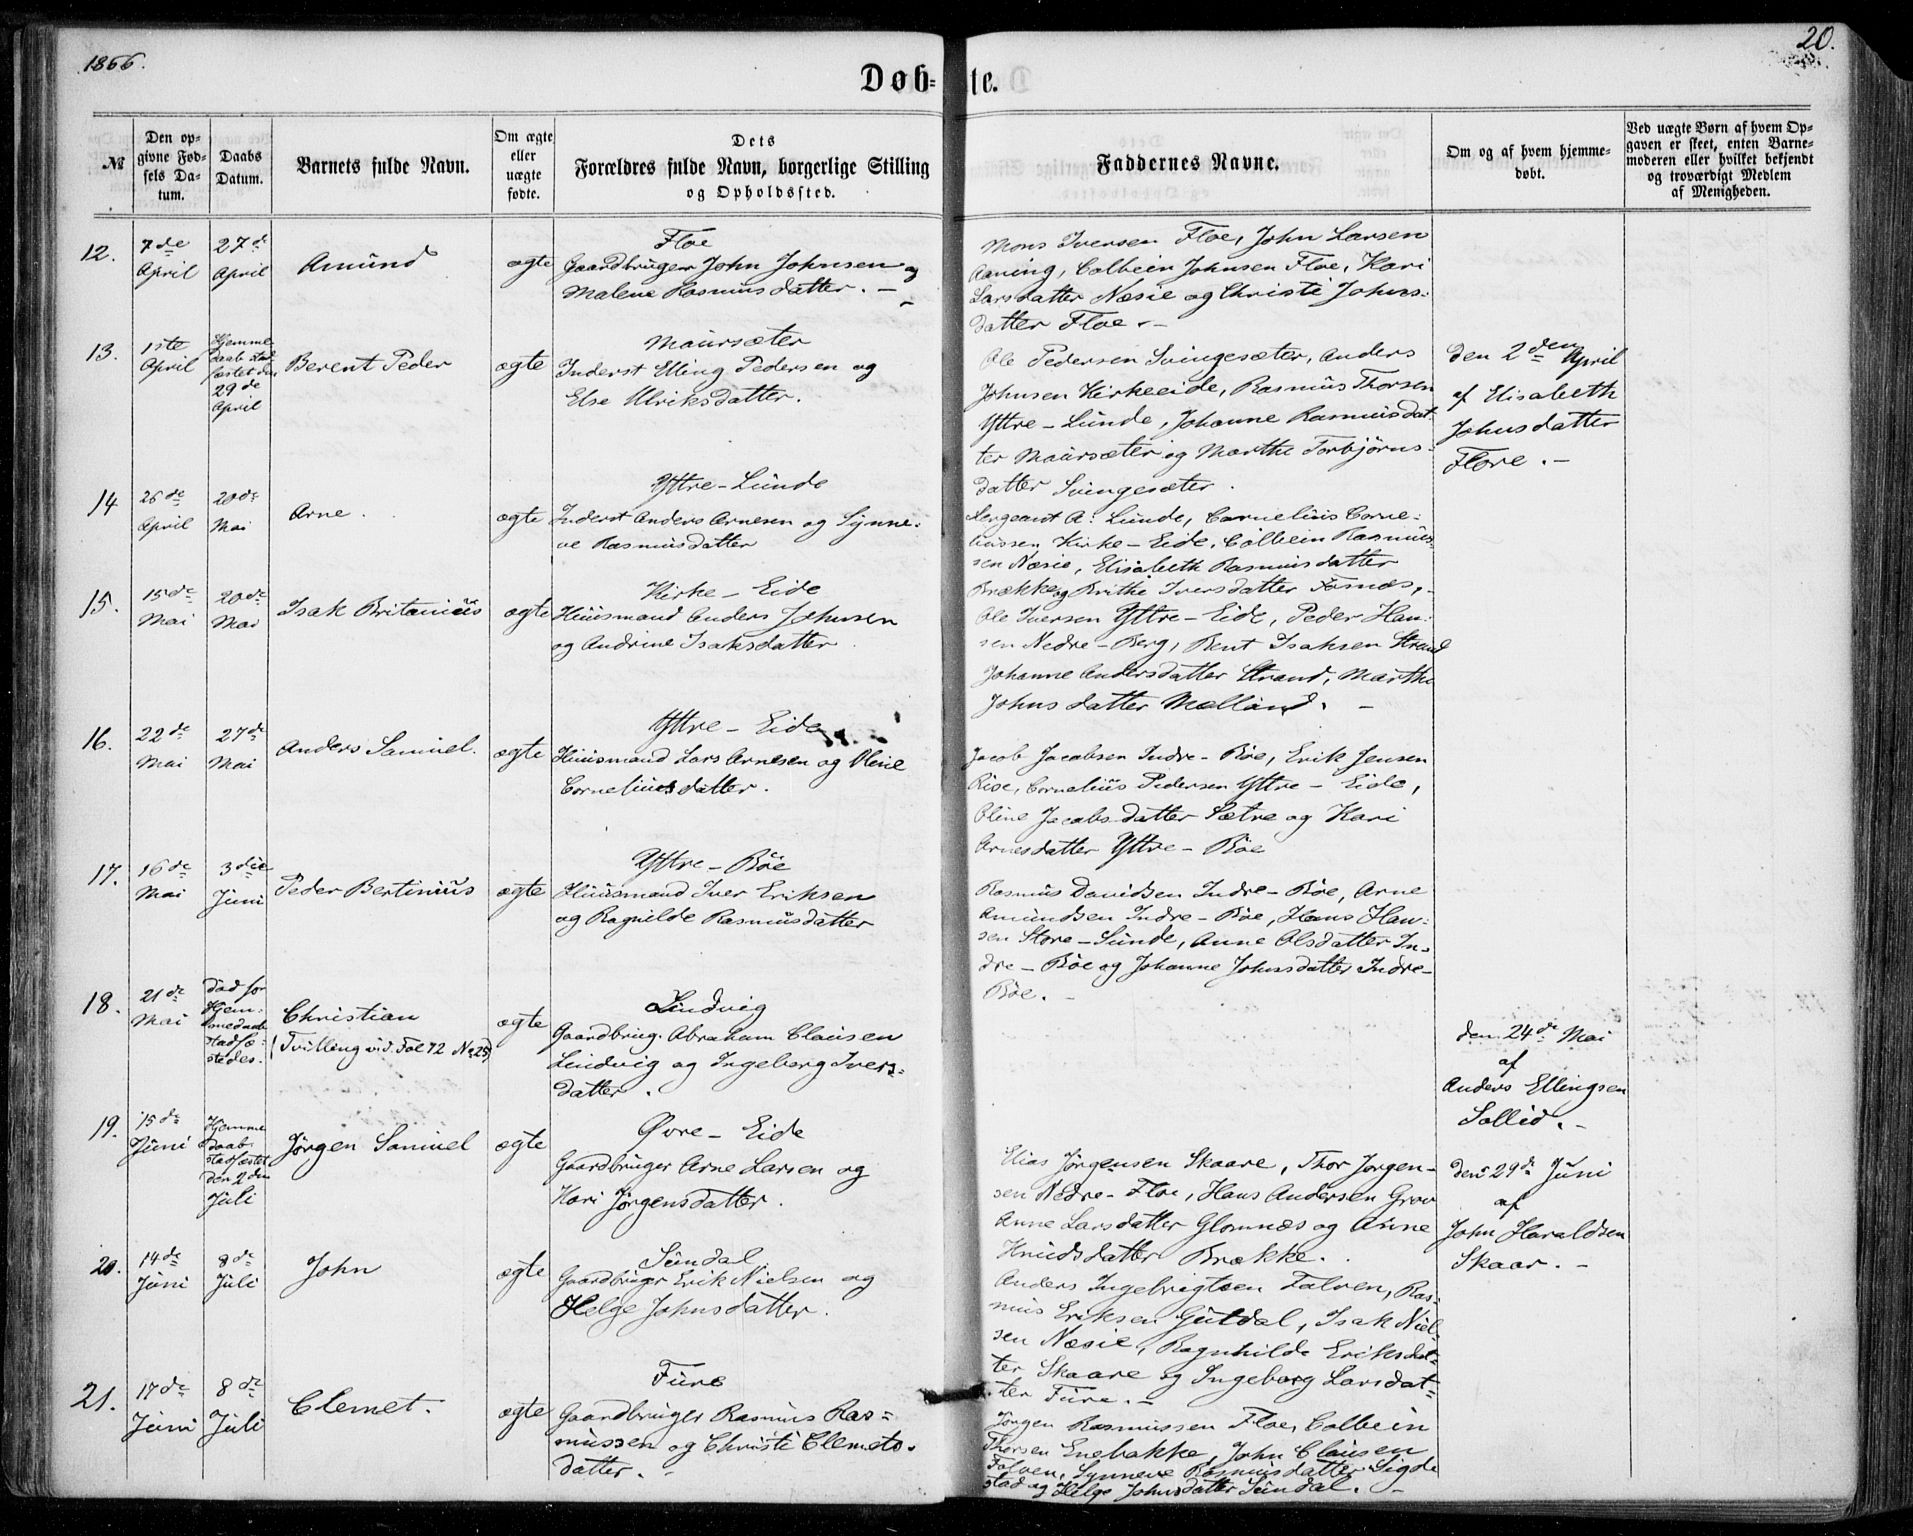 1866.
20.
Døbte.
№
Den opgivne Fødsels Datum.
Daabs Datum.
Barnets fulde Navn.
Om ægte eller uægte fødte.
Dets Forældres fulde Navn, borgerlige Stilling og Opholdssted.
Faddernes Navne.
Om og af hvem hjemmedøbt.
Ved uægte Børn af hvem Opgaven er skeet, enten Barnemoderen eller hvilket bekjendt og troværdigt Medlem af Menigheden.
12.
7de April
27de April
Amund
ægte
Floe
Gaardbruger John Johnsen og
Malene Rasmusdatter. –
Mons Iversen Floe, John Larsen
Aaning, Colbein Johnsen Floe, Kari
Larsdatter Næsie og Christi Johns-
datter Floe. –
13.
1ste April
Hjemme
daab stad
fæstet den
29de
April
Berent Peder
ægte
Maursæter
Inderst Elling Pedersen og
Else Ulriksdatter.
Ole Pedersen Svingesæter, Anders
Johnsen Kirkeeide, Rasmus Thorsen
Yttre – Lunde, Johanne Rasmusdat-
ter Maursæter og Marthe Torbjørns-
datter Svingesæter.
den 2den April
af Elisabeth
Johnsdatter
Flore. –
14
26de April
20de Mai
Arne.
ægte
Yttre – Lunde
Inderst Anders Arnesen og Synne-
ve Rasmusdatter
Sergeant A: Lunde, Cornelius Corne-
liussen Kirke – Eide, Colbein Rasmus-
sen Næsie, Elisabeth Rasmusdatter
Brække og Brithe Iversdatter Fosnæs, –
15.
15de Mai
20de Mai
Isak Britanius
ægte
Kirke – Eide
Huusmand Anders Johnsen
og Andrine Isaksdatter.
Ole Iversen Yttre – Eide, Peder Han-
sen Nedre – Berg, Bent Isaksen Strand
Johanne Andersdatter Strand, Marthe
Johnsdatter Melland. –
16.
22de Mai
27de Mai
Anders Samuel.
ægte
Yttre – Eide
Huusmand Lars Arnesen og Oline
Corneliusdatter.
Jacob Jacobsen Indre – Böe, Erik Jensen
Rise, Cornelius Pedersen Yttre – Eide,
Oline Jacobsdatter Sætre og Kari
Arnesdatter Yttre – Böe
17.
16de Mai
3die Juni
Peder Bertinius
ægte
Yttre – Böe
Huusmand Iver Eriksen
og Ragnilde Rasmusdatter
Rasmus Davidsen Indre – Böe, Arne
Amundsen Indre – Böe, Hans Han-
sen Store – Sunde, Anne Olsdatter In-
dre – Böe og Johanne Johnsdatter Indre –
Böe. –
18.
21de Mai
död før
Hjem-
medaab
stadfæ-
stedes.
Christian
(Tvilling vid. Fol 72 No 25)
ægte
Lindvig
Gaardbrug. Abraham Clausen
Lindvig og Ingeborg Ivers-
datter.
den 24de Mai
af
Anders Ellingsen
Sollid. –
19.
15de Juni
Hjemme
daab
stadfæstet
den 2den
Juli
Jørgen Samuel
ægte
Øvre – Eide
Gaardbruger Arne Larsen og
Kari Jørgensdatter.
Elias Jørgensen Skaare, Thor Jørgen-
sen Nedre – Floe, Hans Andersen Grov
Anne Larsdatter Glomnæs og Anne
Knudsdatter Brække.
den 29de Juni
af
John Haraldsen
Skaar. –
20.
14de Juni
8de Juli
John
ægte
Sundal
Gaardbruger Erik Nielsen og
Helge Johnsdatter.
Anders Ingebrigtsen Folven, Ras-
mus Eriksen Guldal, Isak Niel-
sen Næsie, Ragnhilde Eriksdat-
ter Skaare og Ingeborg Larsdat-
ter Fure. –
21.
17de Juni
8de Juli
Clemet.
ægte
Fure
Gaardbruger Rasmus Ras-
mussen og Christi Clemets-
datter. –
Jörgen Rasmussen Floe, Colbein
Thorsen Enebakke, John Clausen
Folven, Synneve Rasmusdatter Sigde
stad og Helge Johnsdatter Sundal. –